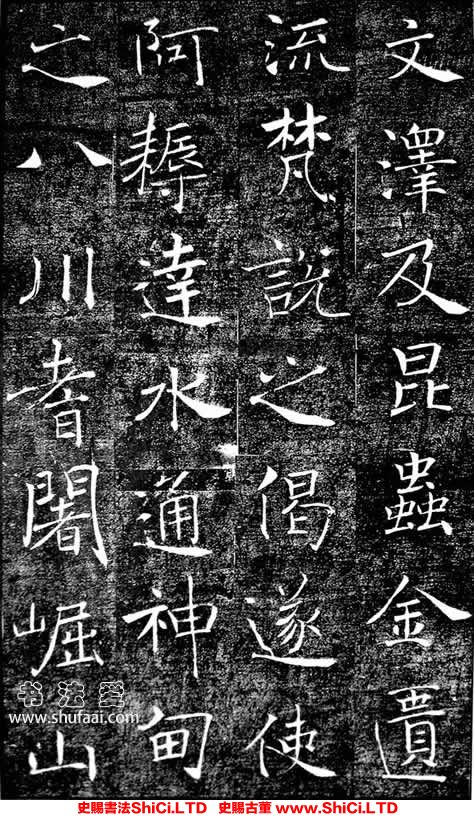 文澤及昆蟲金匱
流梵說之偈遂使
阿耨達水通神甸
之八川耆闍崛山
书法爱
www.shufaai.com
史賜書法ShiCi.LTD 史賜古董 www.ShiCi.LTD